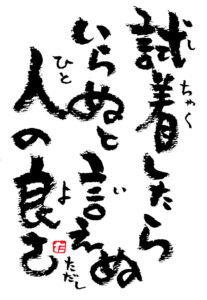 試着したら
いらぬと言えぬ
人の良さ
しちゃく
い
ひと
よ
ただし